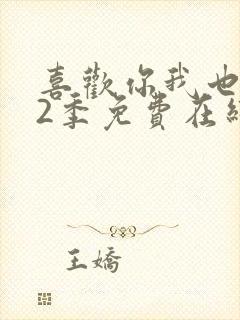 喜歡你我也
2季免費在線
王嬌